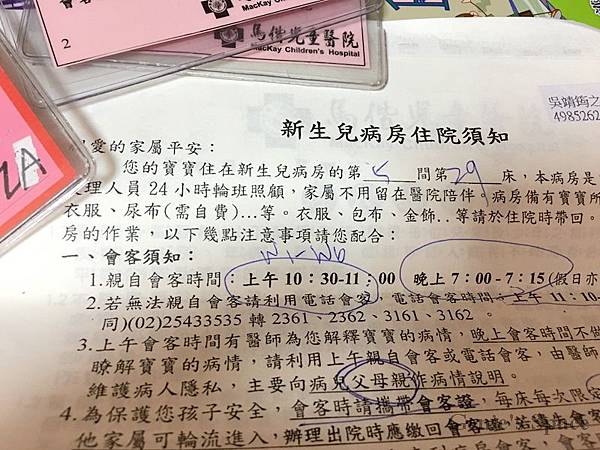 馬偕兒童醫院
MacKay Children's Hospital
2
馬偕兒童醫院
MacKay Children's Hospital
2A
吳靖筠之
4985262
新生兒病房住院須知
愛的家屬平安：
您的寶寶住在新生兒病房的第 5 間第 29 床，本病房是
理人員24小時輪班照顧，家屬不用留在醫院陪伴。病房備有寶寶所
衣服、尿布(需自費)…等。衣服、包布、金飾..等請於住院時帶回。
房的作業，以下幾點注意事項請您配合：
W1-W6
一、會客須知：
1.親自會客時間：上午10：30-11：00 晚上7：00-7：15(假日亦
2.若無法親自會客請利用電話會客，電話會客時間：上午11：10-
同)(02)25433535 轉 2361、2362、3161、3162。
3.上午會客時間有醫師為您解釋寶寶的病情，晚上會客時間不做
瞭解寶寶的病情，請利用上午親自會客或電話會客，由醫師
維護病人隱私，主要向病兒父母親作病情說明。
4.為保護您孩子安全，會客時請攜帶會客證，每床每次限
他家屬可輪流進入，辦理出院時應繳回會客證